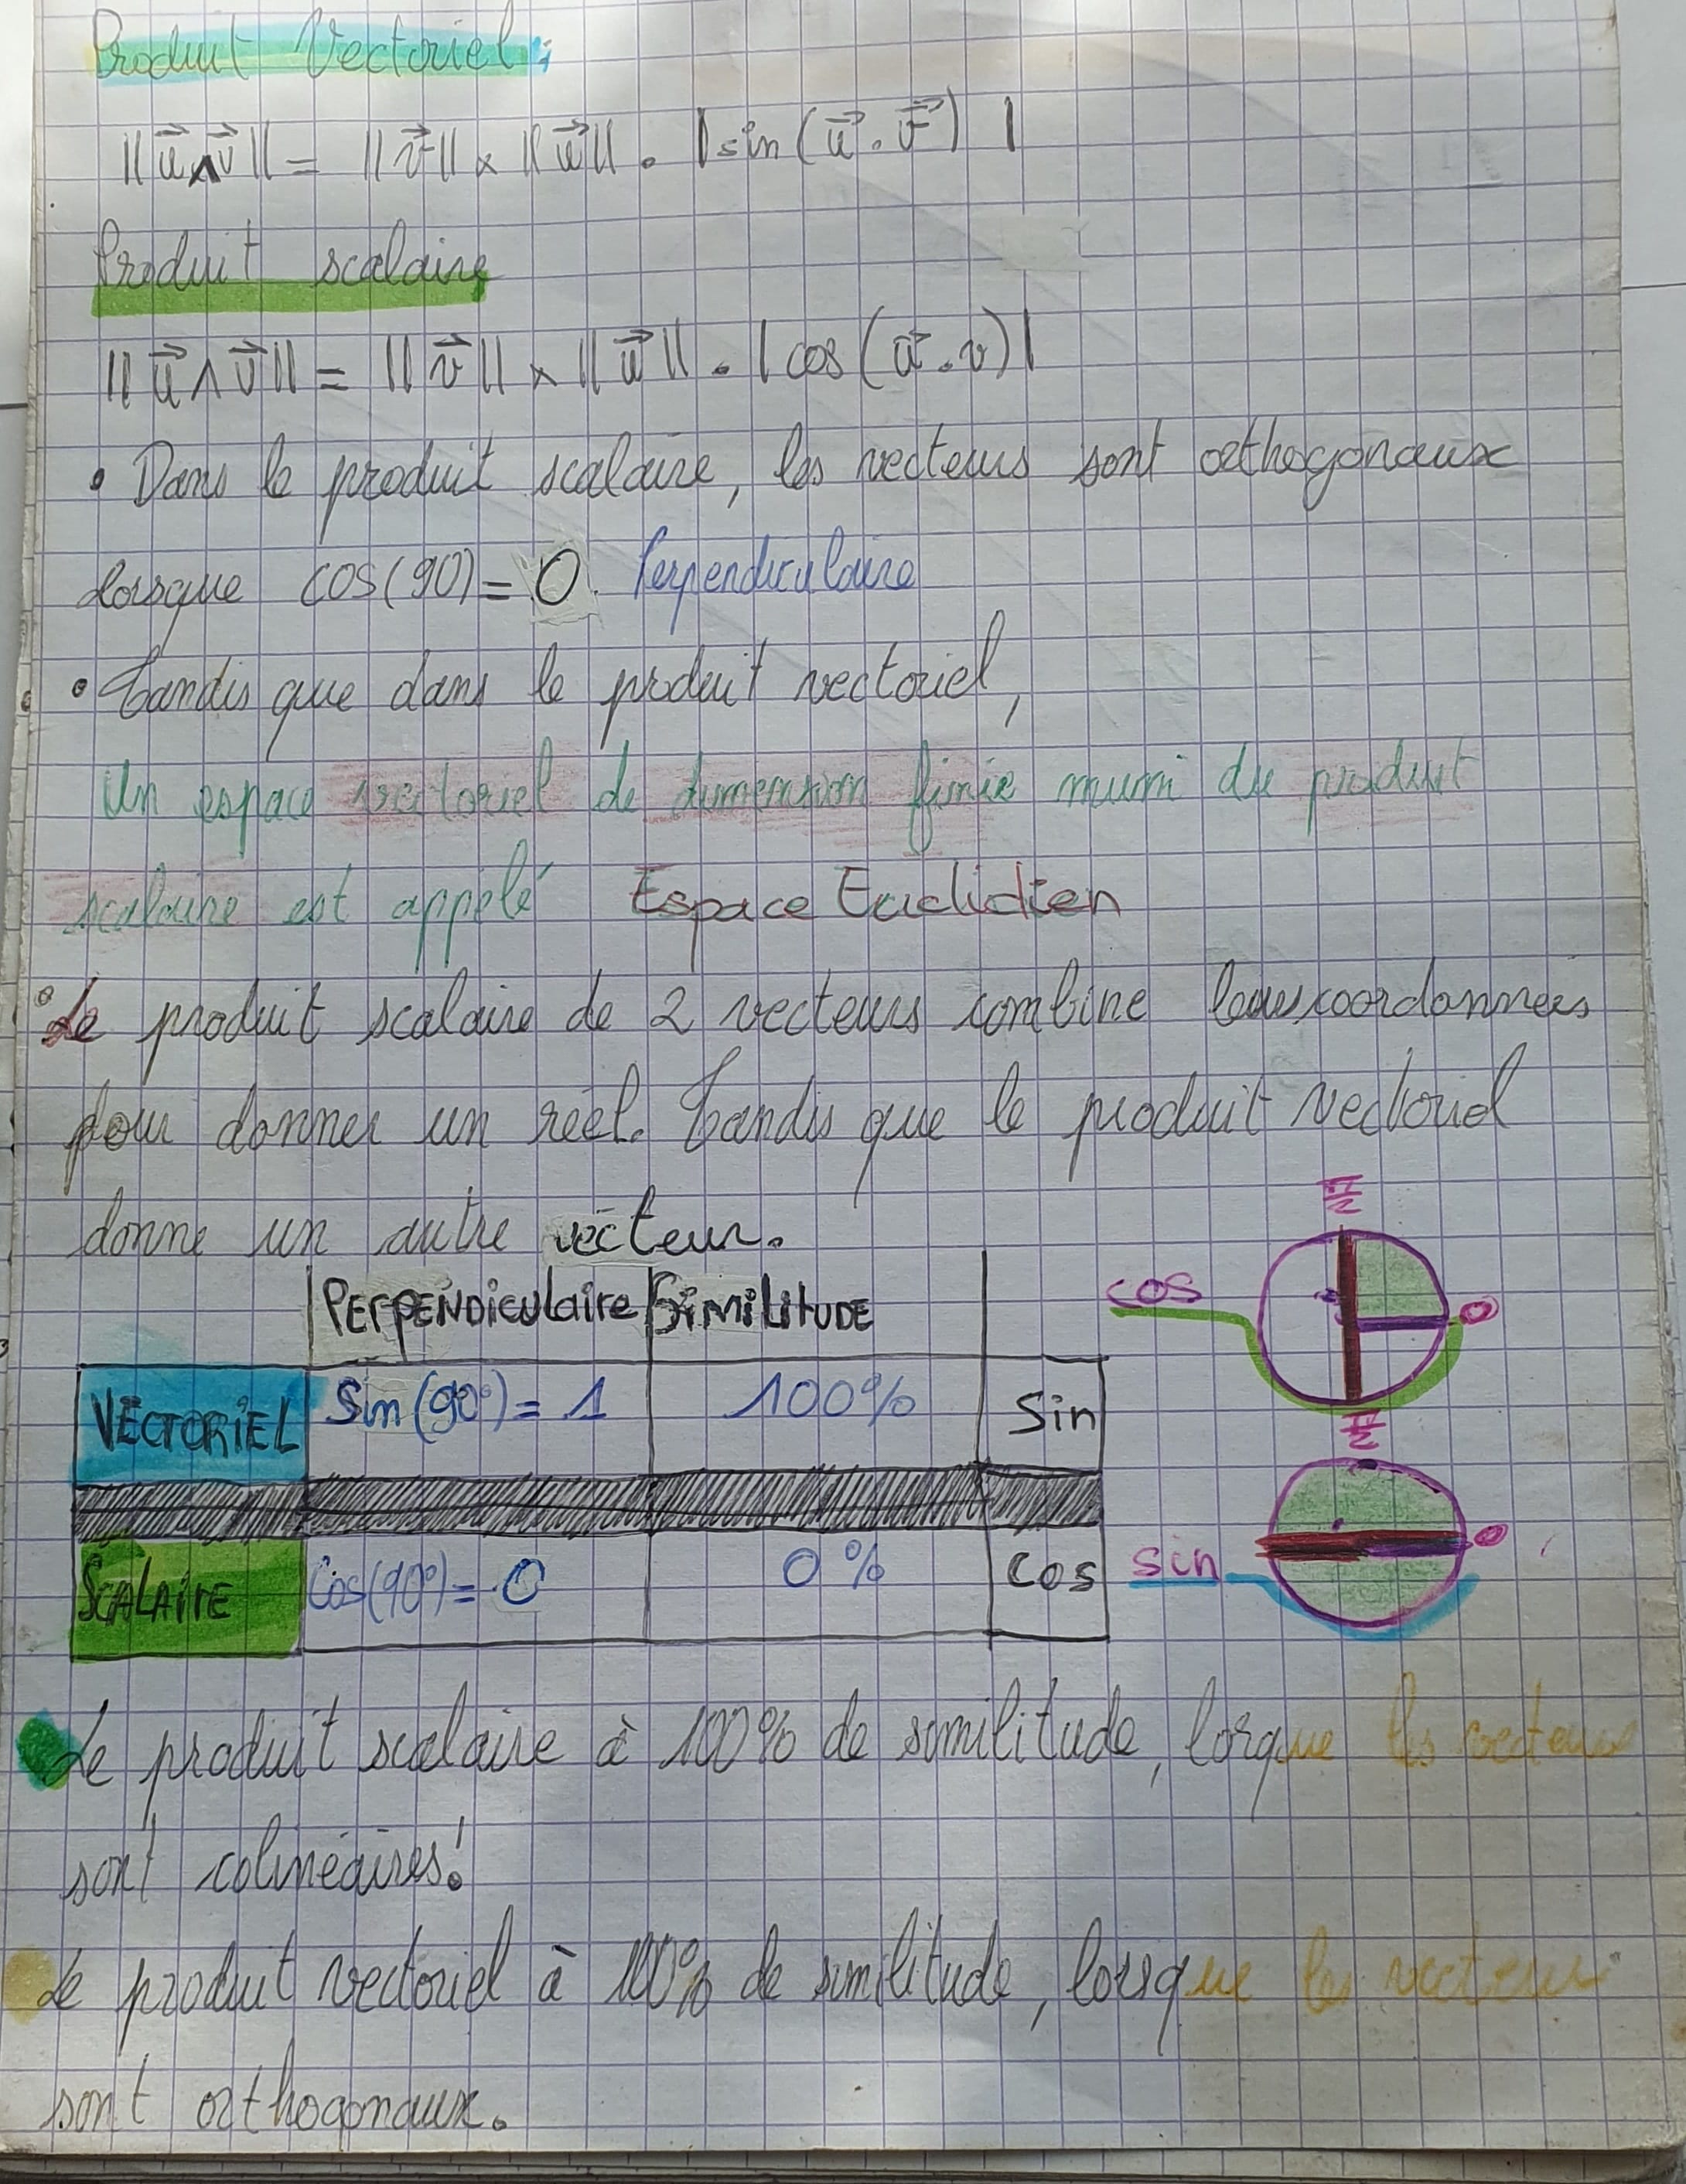 Produit Vectoriel :
||u⃗∧v⃗|| = ||v⃗|| x ||u⃗|| . |sin(u⃗.v⃗)|
Produit scalaire
||u⃗∧v⃗|| = ||v⃗|| x ||u⃗|| . |cos(u⃗.v)|
• Dans le produit scalaire, les vecteurs sont orthogonaux
lorsque cos(90)= 0. Perpendiculaire
• Tandis que dans le produit vectoriel,
Un espace vectoriel de dimension finie muni du produit
scalaire est appélé Espace Euclidien
• Le produit scalaire de 2 vecteurs combine leurs coordonnées
pour donner un réel. Tandis que le produit vectoriel
donne un autre vecteur.
π/2
PERPENDICULAIRE SIMILITUDE
cos 0
VECTORIEL Sin(90°)= 1 100% Sin
π/2
SCALAIRE Cos(90°)= 0 0% Cos
sin 0
Le produit scalaire à 100% de similitude, lorque les vecteurs
sont colinéaires!
Le produit vectoriel à 100% de similitude, lorsque les vecteurs
sont orthogonaux.